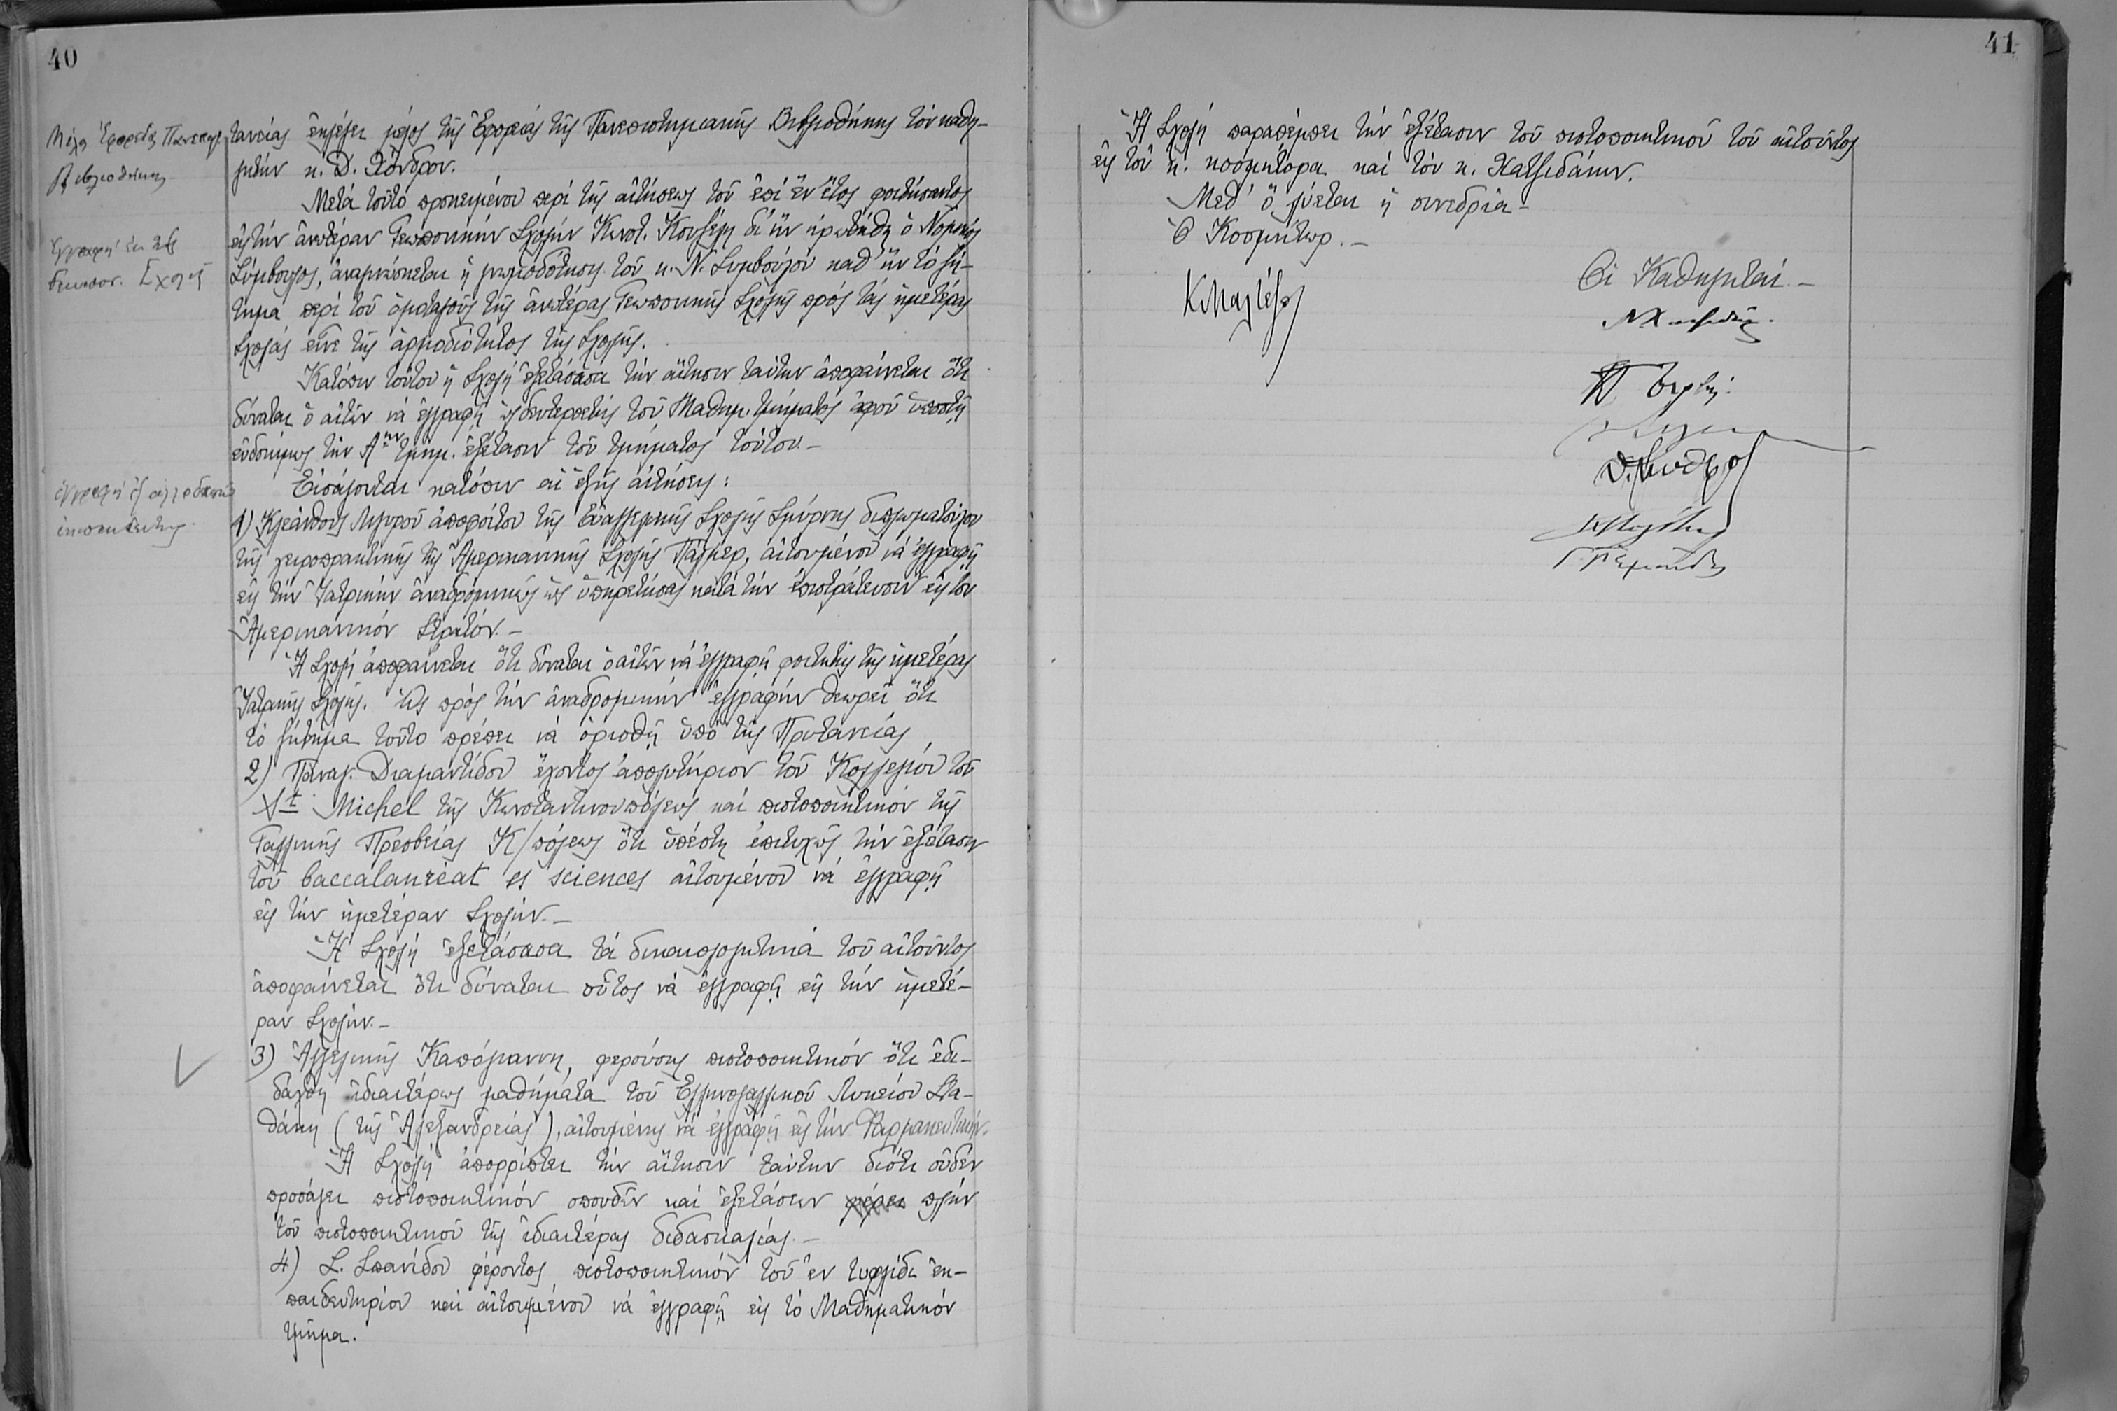 40
τανείας ἐκλέγει μέλος τῆς Ἐφορείας τῆς Πανεπιστημιακῆς Βιβλιοθήκης τόν καθη-
γητήν κ. Δ. Χόνδρον.
Μέλος Ἐφορείας Πανεπιστ.
Βιβλιοθήκης
Μετά τοῦτο προκειμένου περί τῆς αἰτήσεως τοῦ ἐπί ἕν ἔτος φοιτήσαντος
εἰς τήν ἀνωτέραν Γεωπονικήν Σχολήν Κωνστ. δι' ἥν ἠρωτήθη ὁ Νομικός
Σύμβουλος, ἀναγινώσκεται ἡ γνωμοδότησις τοῦ κ. Ν. Συμβούλου καθ' ἥν τό ζή-
τημα περί τοῦ ὁμοταγοῦς τῆς ἀνωτέρας Γεωπονικῆς Σχολῆς πρός τάς ἡμετέρας
Σχολάς εἶνε τῆς ἁρμοδιότητος τῆς Σχολῆς.
Ἐγγραφή ἐκ τῆς
Γεωπον. Σχολῆς
Κατόπιν τούτου ἡ Σχολή ἐξετάσασα τήν αἴτησιν ταύτην ἀποφαίνεται ὅτι
δύναται ὁ αἰτῶν νά ἐγγραφῇ ὡς δευτεροετής τοῦ Μαθημ. τμήματος ἀφοῦ ὑποστῇ
εὐδοκίμως τήν Α΄ην τμημ. ἐξέτασιν τοῦ τμήματος τούτου.-
Εἰσάγονται κατόπιν αἱ ἑξῆς αἰτήσεις:
ἐγγραφή ἐξ ἀλλοδαπῶν
ἐκπαιδευτηρ.
1) Κλεάνθους ἀποφοίτου τῆς Εὐαγγελικῆς Σχολῆς Σμύρνης διπλωματούχου
τῆς χειροπρακτικῆς τῆς Ἀμερικανικῆς Σχολῆς Πάλμερ, αἰτουμένου νά ἐγγραφῇ
εἰς τήν Ἰατρικήν ἀναδρομικῶς ὡς ὑπηρετήσας κατά τήν ἐπιστράτευσιν εἰς τόν
Ἀμερικανικόν Στρατόν.-
Ἡ Σχολή ἀποφαίνεται ὅτι δύναται ὁ αἰτῶν νά ἐγγραφῇ φοιτητής τῆς ἡμετέρας
Ἰατρικῆς Σχολῆς. Ὡς πρός τήν ἀναδρομικήν ἐγγραφήν θεωρεῖ ὅτι
τό ζήτημα τοῦτο πρέπει νά ὁρισθῇ ὑπό τῆς Πρυτανείας
2) Παναγ. Διαμαντίδου ἔχοντος ἀπολυτήριον τοῦ Κολλεγίου τοῦ
St Michel τῆς Κωνσταντινουπόλεως καί πιστοποιητικόν τῆς
Γαλλικῆς Πρεσβείας Κ/πόλεως ὅτι ὑπέστη ἐπιτυχῶς τήν ἐξέτασιν
τοῦ baccalaureat es sciences αἰτουμένου νά ἐγγραφῇ
εἰς τήν ἡμετέραν Σχολήν.-
Ἡ Σχολή ἐξετάσασα τά δικαιολογητικά τοῦ αἰτοῦντος
ἀποφαίνεται ὅτι δύναται οὗτος νά ἐγγραφῇ εἰς τήν ἡμετέ-
ραν Σχολήν.-
3) Ἀγγελικῆς Καπόγιαννη, φερούσης πιστοποιητικόν ὅτι ἐδι-
δάχθη ἰδιαιτέρως μαθήματα τοῦ Ἑλληνογαλλικοῦ Λυκείου Στα-
θάκη (τῆς Ἀλεξανδρείας), αἰτουμένης νά ἐγγραφῇ εἰς τήν Φαρμακευτικήν.
Ἡ Σχολή ἀπορρίπτει τήν αἴτησιν ταύτην διότι οὐδέν
προσάγει πιστοποιητικόν σπουδῶν καί ἐξετάσεων φέρει πλήν
τοῦ πιστοποιητικοῦ τῆς ἰδιαιτέρας διδασκαλίας.-
4) Σ. Σπανίδου φέροντος πιστοποιητικόν τοῦ ἐν Τυφλίδι ἐκ-
παιδευτηρίου καί αἰτουμένου νά ἐγγραφῇ εἰς τό Μαθηματικόν
τμῆμα.
41
Ἡ Σχολή παραπέμπει τήν ἐξέτασιν τοῦ πιστοποιητικοῦ τοῦ αἰτοῦντος
εἰς τόν κ. κοσμήτορα καί τόν κ. Χατζιδάκιν.
Μεθ' ὅ λύεται ἡ συνεδρία-
Ὁ Κοσμήτωρ.-
Κ Μαλτέζος
Οἱ Καθηγηταί.-
Ν Χατζιδάκις.
Δ. Χόνδρος